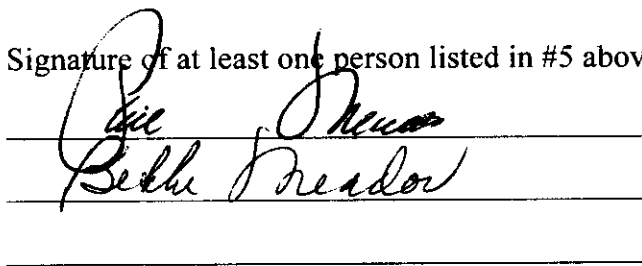 Signature of at least one person listed in #5 abov
Bekke Meador